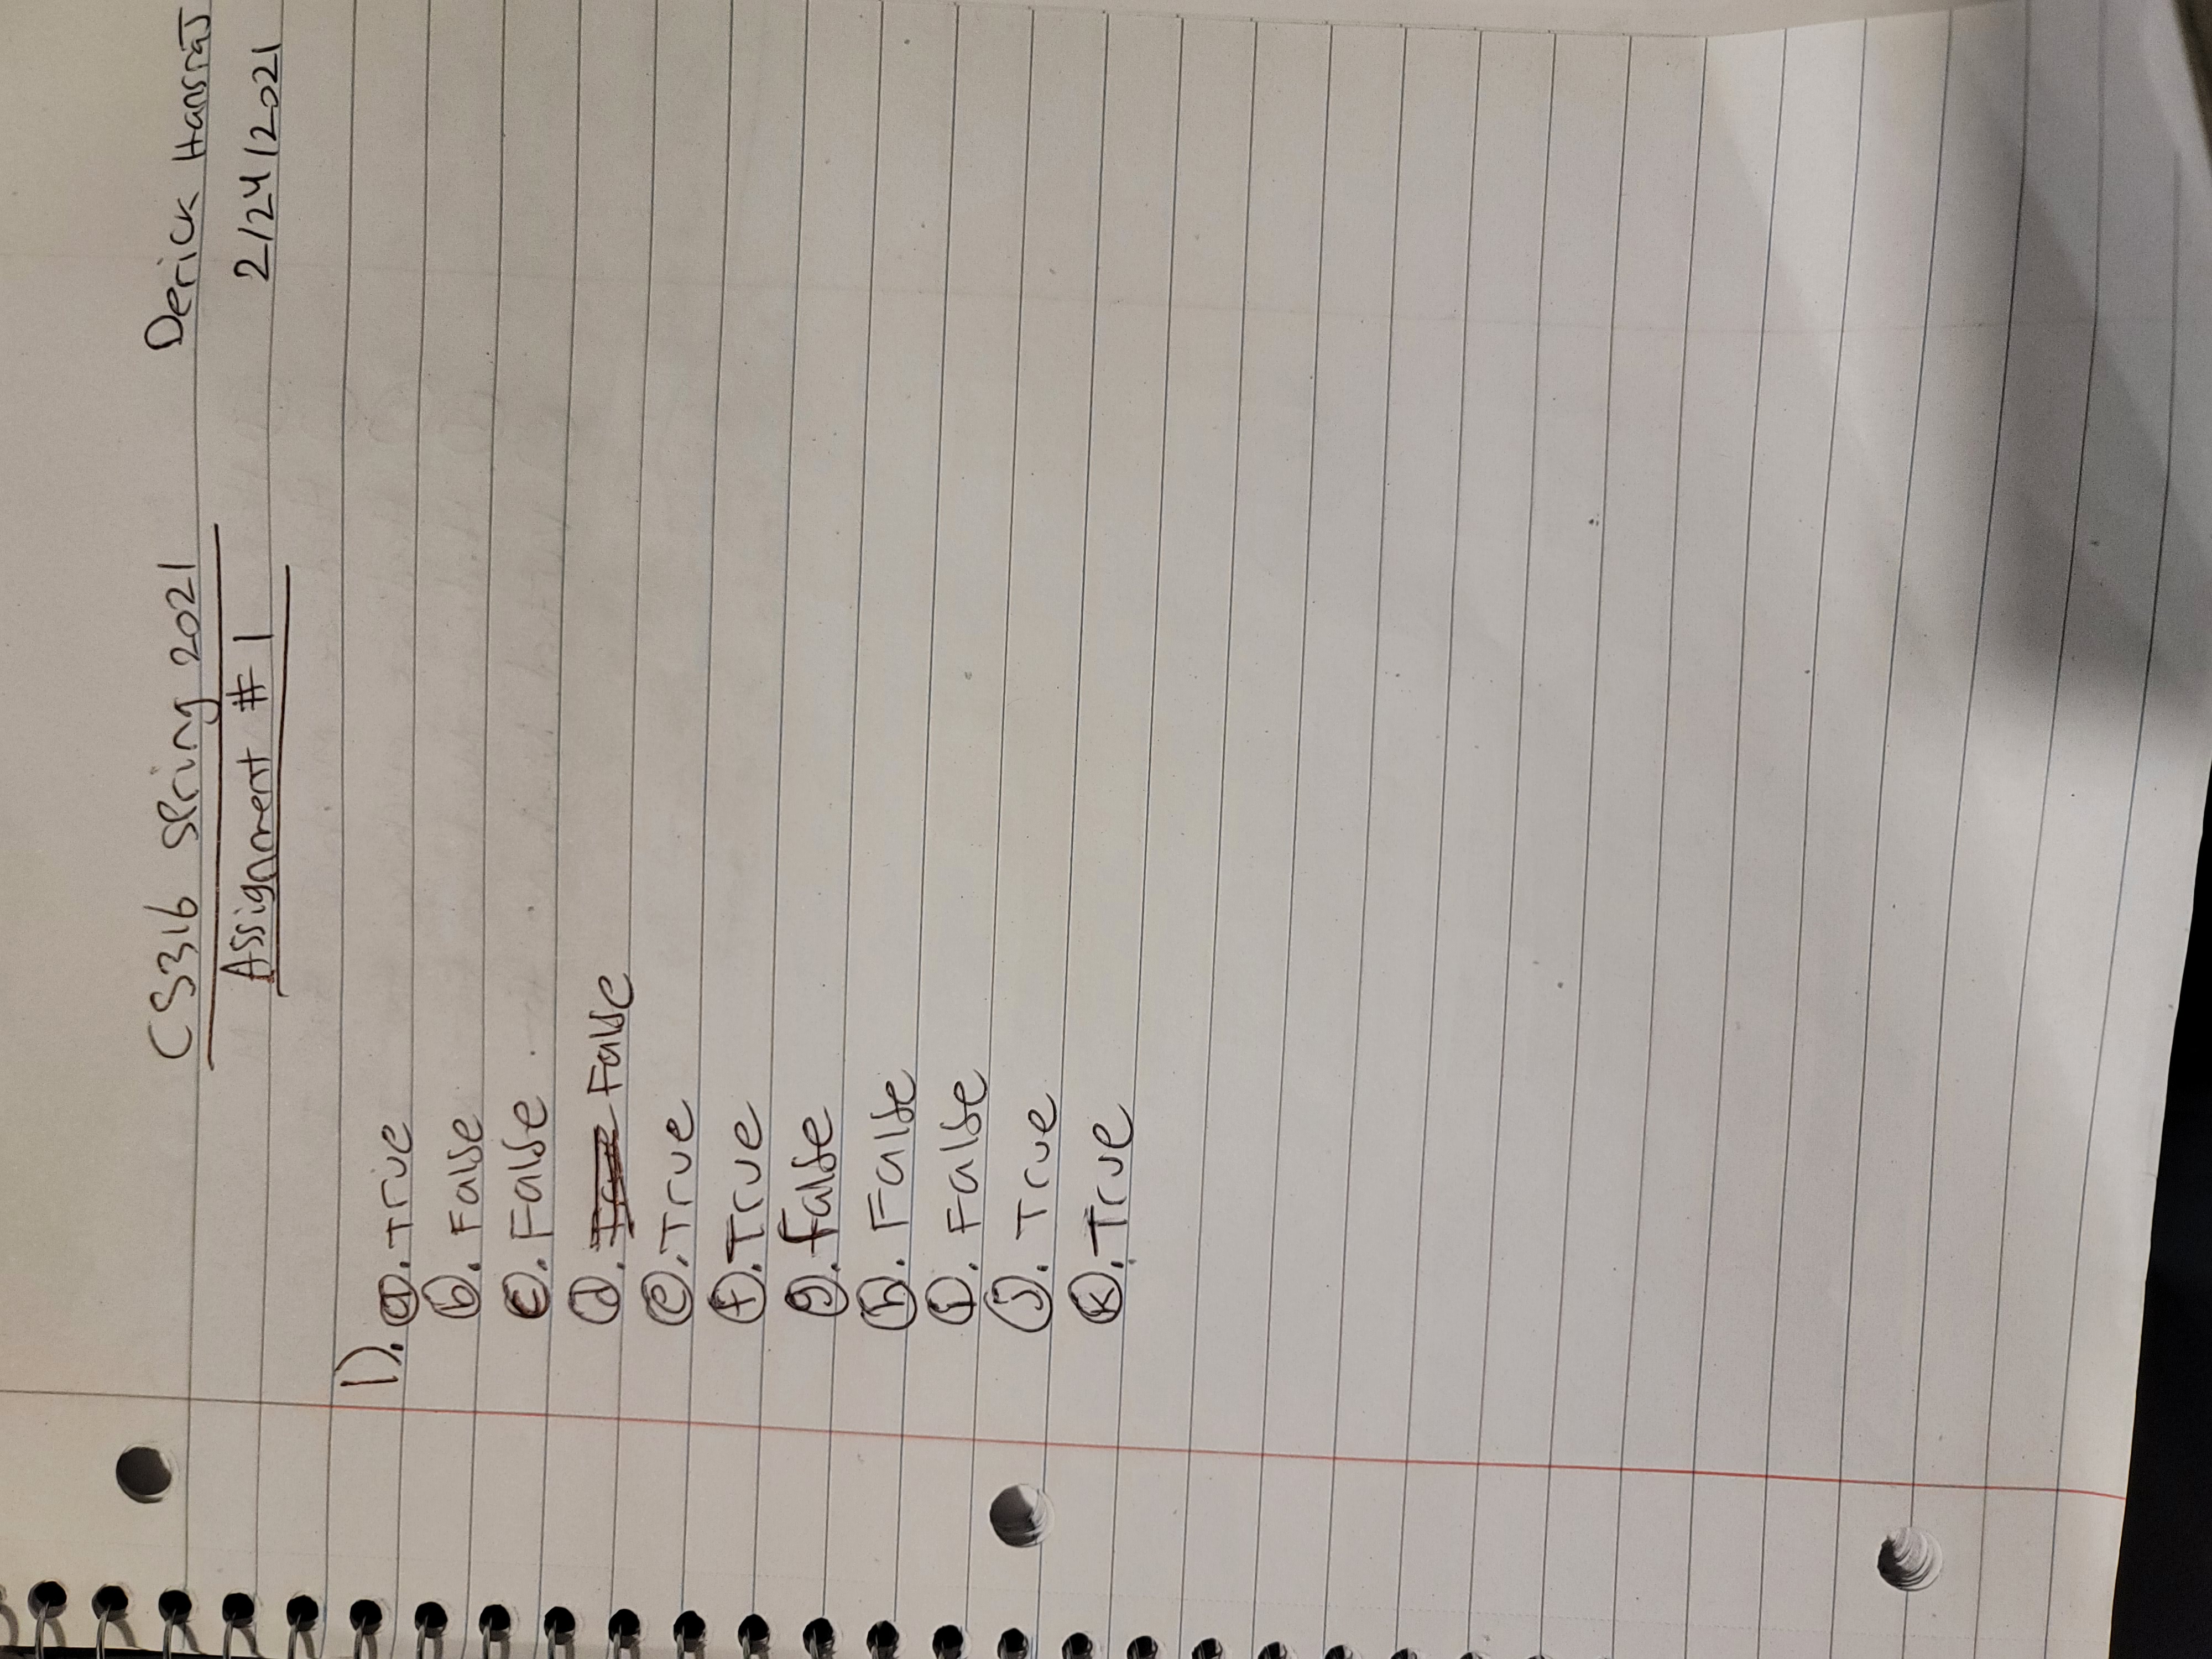 CS316 Spring 2021
Derick Hansraj
Assignment # 1
2/24/2021
1). a. True
b. False
c. False
d. True False
e. True
f. True
g. False
h. False
i. False
j. True
k. True